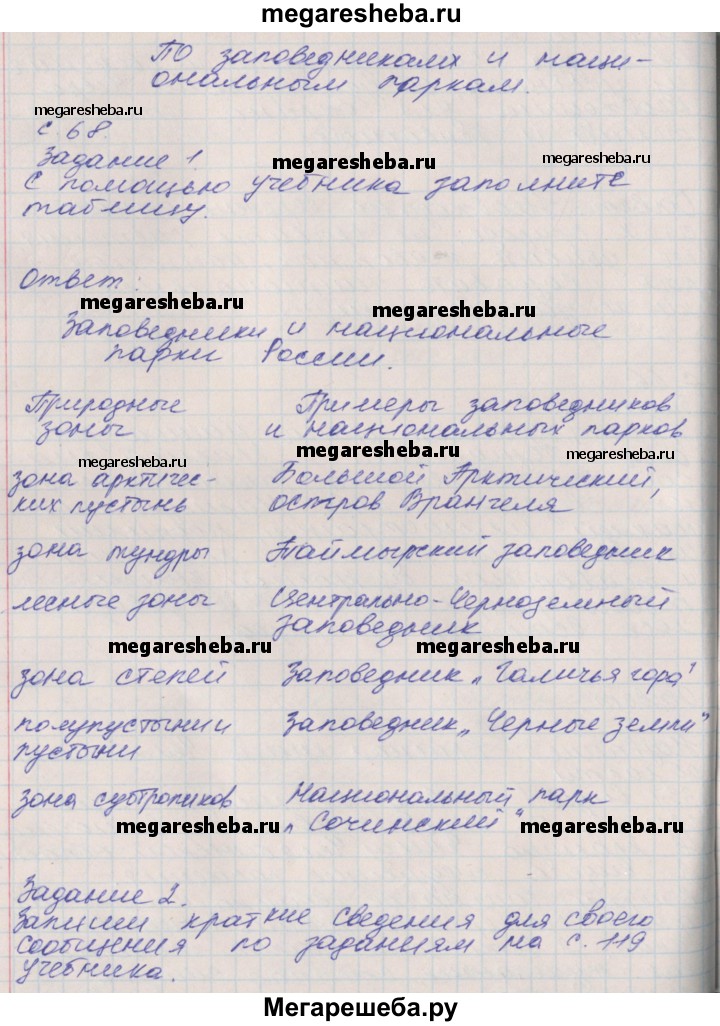 megaresheba.ru
По заповедникам и наци-
ональным паркам.
megaresheba.ru
с. 68.
Задание 1
megaresheba.ru
megaresheba.ru
С помощью учебника заполните
таблицу.
Ответ:
megaresheba.ru
megaresheba.ru
Заповедники и национальные
парки России.
Природные Примеры заповедников
зоны и национальных парков
megaresheba.ru
megaresheba.ru
megaresheba.ru
зона арктичес- Большой Арктический,
ких пустынь остров Врангеля
зона тундры Таймырский заповедник
лесные зоны Центрально-Черноземный
заповедник
megaresheba.ru
megaresheba.ru
зона степей Заповедник „Галичья гора"
полупустыни и Заповедник „Черные земли"
пустыни
зона субтропиков Национальный парк
„Сочинский"
megaresheba.ru
megaresheba.ru
Задание 2.
Запиши краткие сведения для своего
сообщения по заданиям на с. 119
учебника.
Мегарешеба.ру